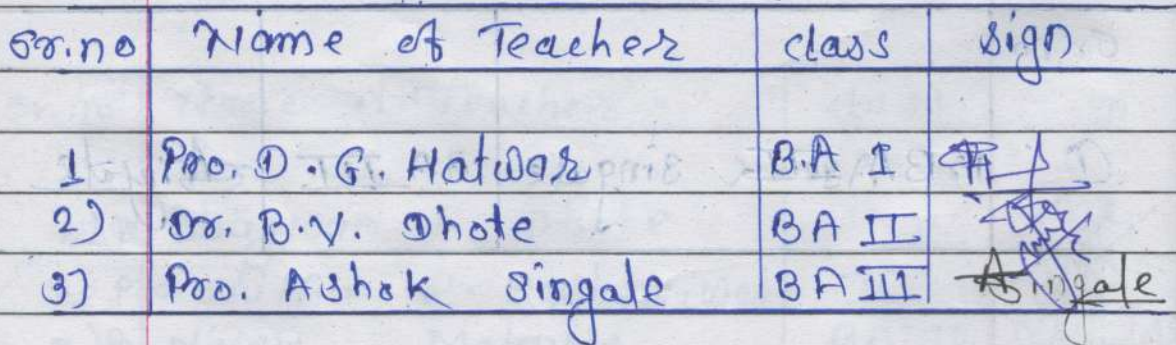 Sr.no Name of Teacher class sign
1 Pro. D. G. Hatwar B.A I
2) Dr. B.V. Dhote BA II
3) Pro. Ashok Singale BA III ASingale